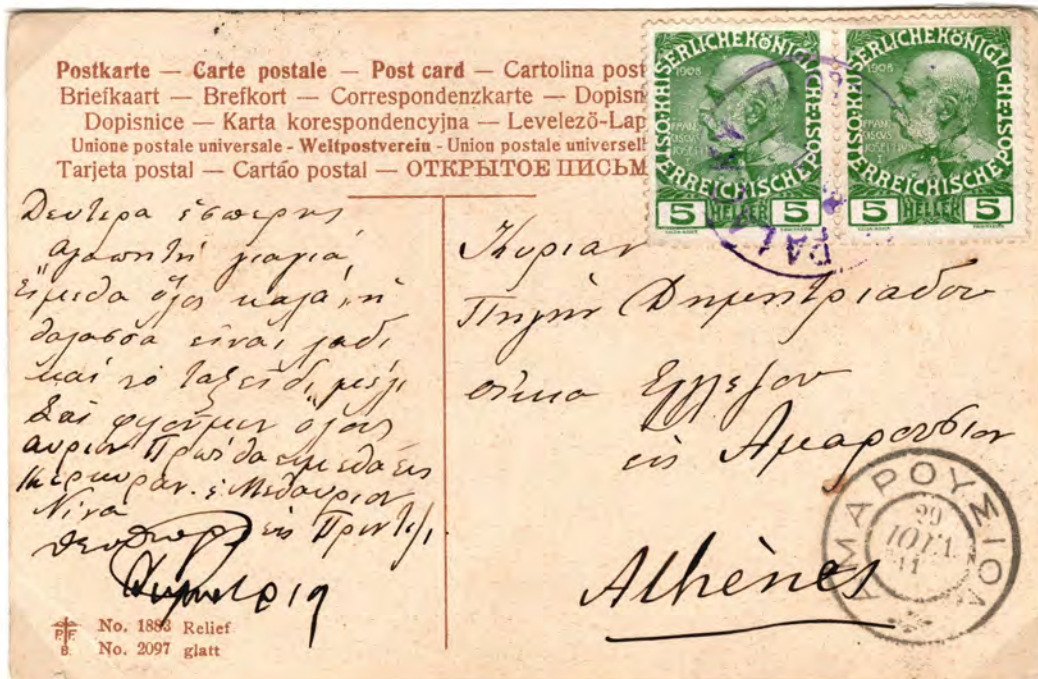 Postkarte — Carte postale — Post card — Cartolina post
Briefkaart — Brefkort — Correspondenzkarte — Dopisn
Dopisnice — Karta korespondencyjna — Levelező-Lap
Unione postale universale - Weltpostverein - Union postale universell
Tarjeta postal — Cartáo postal — ОТКРЫТОЕ ПИСЬМ
KAISERLICHEKÖNIGLICHE ÖSTERREICHISCHE POST
1908
FRANCISCUS JOSEPHUS
5 HELLER 5
KAISERLICHEKÖNIGLICHE ÖSTERREICHISCHE POST
1908
FRANCISCUS JOSEPHUS
5 HELLER 5
Δευτερα
αγαπητή γιαγιά
Είμεθα όλοι καλά, η
θαλασσα είναι λαδι
και το ταξειδι μελι
Σας φιλουμεν όλους
αυριον Πρωι θα ειμεθα εις
Κερκυραν. Μεθαυριον
Νινα εις Πριντεζι
Δημητριη
Κυριαν
Πηγην Δημητριαδου
οικια
εις Αμαρουσιον
Athènes
ΑΜΑΡΟΥΣΙΟΝ
ΙΟΥΛ
11
No. 1883 Relief
No. 2097 glatt
P.F.
B.